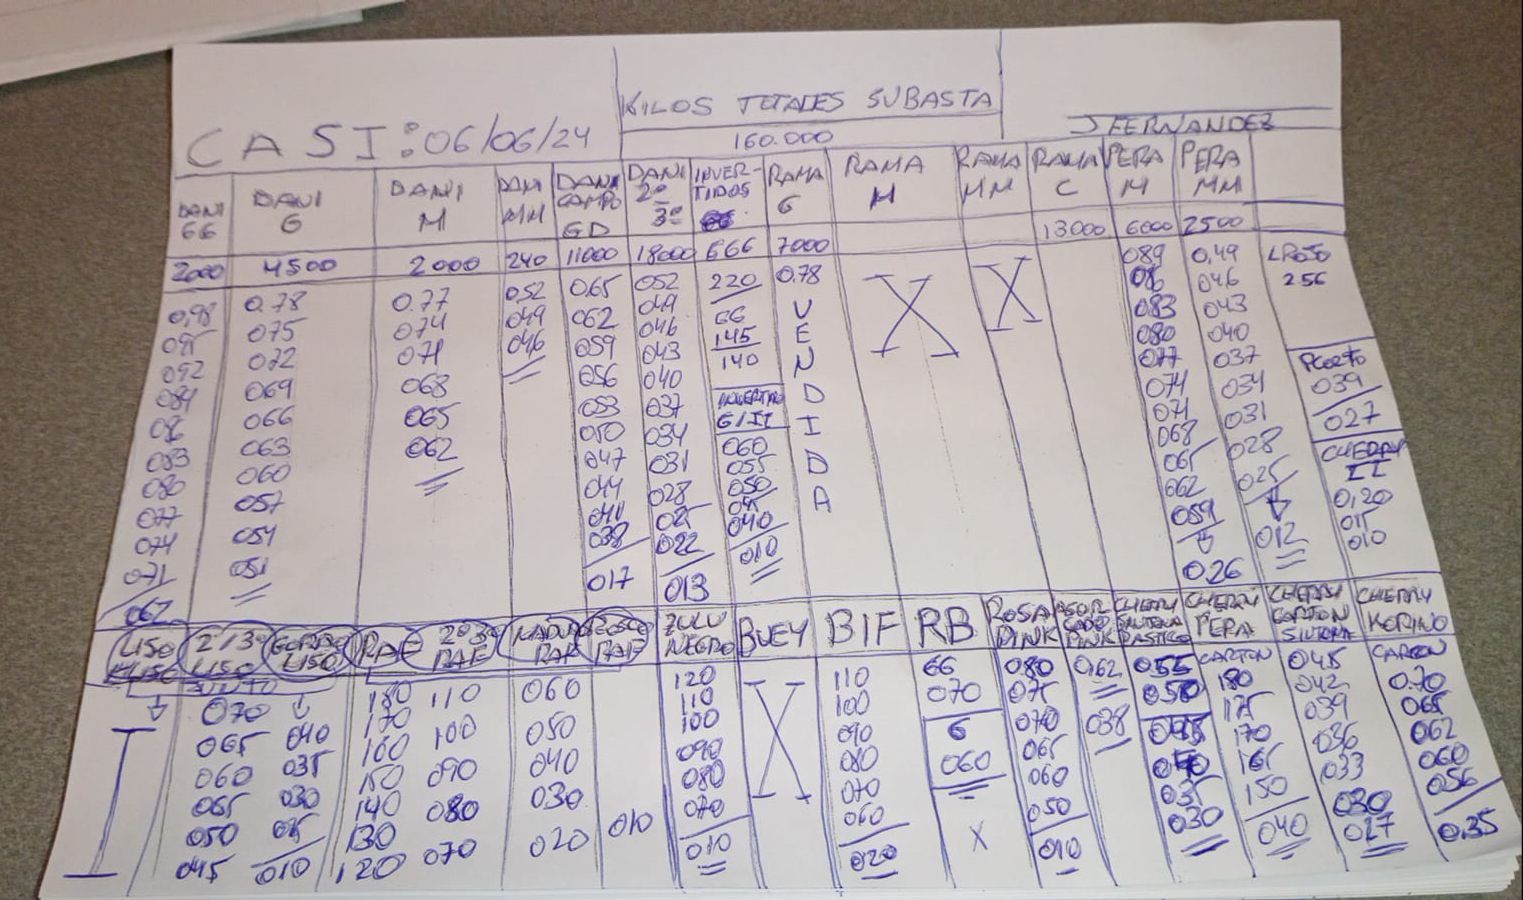 KILOS TOTALES SUBASTA
CASI: 06/06/24
160.000
J FERNANDEZ
DANI GG
DANI G
DANI M
DANI MM
DANI CAMPO GD
DANI 2º 3º
INVER-TIDOS
RAMA G
RAMA M
RAMA MM
RAMA C
PERA M
PERA MM
2000 4500 2000 240 11000 18000 666 7000 13000 6000 2500
0,98 0.78 0.77 052 065 052 220 0.78 089 0,49 LROJO
095 075 074 049 062 049 GG V 086 046 256
092 072 071 046 059 046 145 E 083 043
089 069 068 056 043 140 N 080 040
086 066 065 053 040 D 077 037 039
083 063 062 050 037 G/II I 074 034 027
080 060 047 034 060 D 071 031 CHERRY II
077 057 044 031 055 A 068 028 0,20
074 054 041 028 050 065 025 015
071 051 038 025 045 062 012 010
062 017 022 040 059
013 010 0.26
LISO
2º/3º LISO
GORDO LISO
RAF
2º 3º RAF
MADURO RAF
ROJO RAF
ZULU NEGRO
BUEY
BIF
RB
ROSA PINK
ASURCADO PINK
CHERRY SILTONA PLASTICO
CHERRY PERA
CHERRY CARTON SILTONA
CHERRY KORINO
070 180 110 060 120 110 GG 080 062 055 CARTON 045 CARTON
065 040 170 100 050 110 100 070 075 038 050 180 042 0.70
060 035 160 090 040 100 090 G 070 045 175 039 065
065 030 150 080 030 090 080 060 065 040 170 036 062
050 025 140 070 020 080 070 X 060 035 165 033 060
045 010 130 010 070 060 050 030 150 030 056
120 010 020 010 040 027 0,35